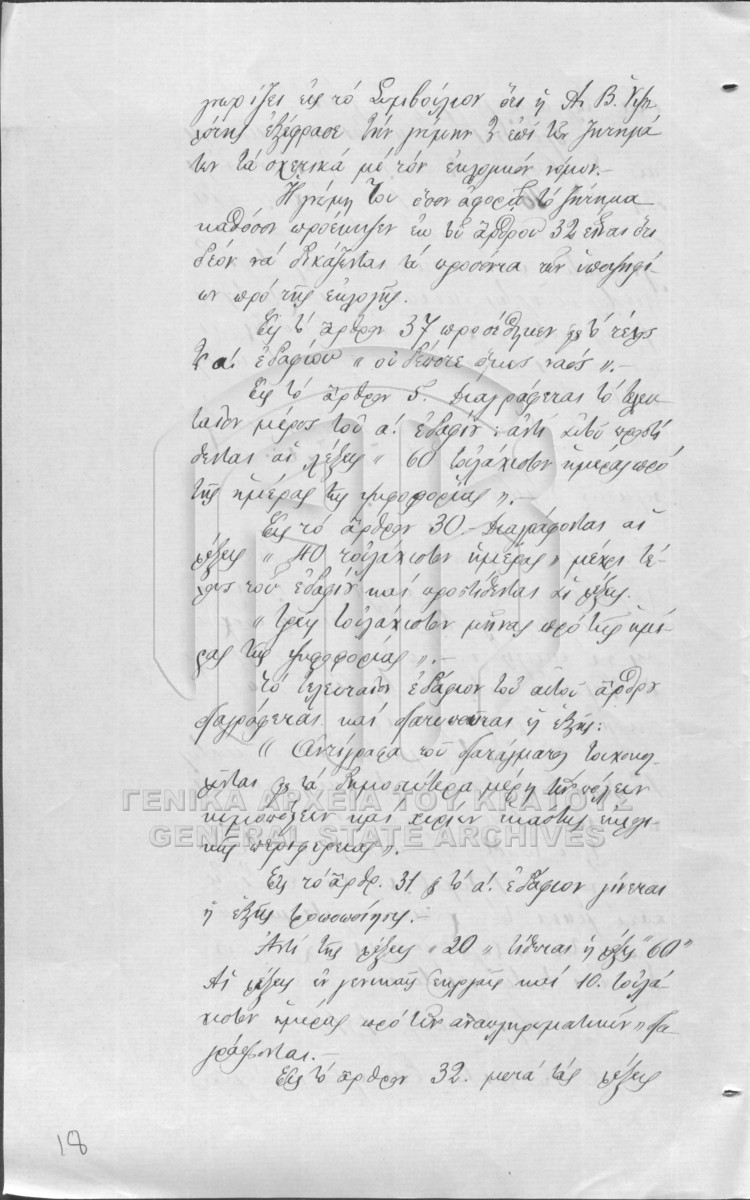 γνωρίζει εἰς τὸ Συμβούλιον ὅτι ἡ Α. Β. Ὑψη
λότης ἐξέφρασε τὴν γνώμην ἐπὶ τῶν ζητημά
των τὰ σχετικὰ μὲ τὸν ἐκλογικὸν νόμον.-
Ἡ γνώμη του ὅσον ἀφορᾷ τὸ ζήτημα
καθόσον προέκυψεν ἐκ τοῦ ἄρθρου 32 εἶναι ὅτι
δέον νὰ δικάζωνται τὰ προσόντα τῶν ὑποψηφί
ων πρὸ τῆς ἐκλογῆς.
Εἰς τὸ ἄρθρον 37 προσέθηκεν εἰς τὸ τέλος
τοῦ α! ἐδαφίου " οὐδέποτε ὅμως ναός ".-
Εἰς τὸ ἄρθρον 5. Διαγράφεται τὸ τελευ
ταῖον μέρος τοῦ α! ἐδαφίου : ἀντὶ αὐτοῦ προστί
θενται αἱ λέξεις " 60 τοὐλάχιστον ἡμέρας πρὸ
τῆς ἡμέρας τῆς ψηφοφορίας ".-
Εἰς τὸ ἄρθρον 30.- Διαγράφονται αἱ
λέξεις " 40 τοὐλάχιστον ἡμέρας " μέχρι τέ-
λους τοῦ ἐδαφίου καὶ προστίθενται αἱ λέξεις.
" τρεῖς τοὐλάχιστον μῆνας πρὸ τῆς ἡμέ
ρας τῆς ψηφοφορίας ".-
Τὸ τελευταῖον ἐδάφιον τοῦ αὐτοῦ ἄρθρου
διαγράφεται καὶ διατυποῦται ὡς ἑξῆς:
" Ἀντίγραφα τοῦ διατάγματος τοιχοκολ
λῶνται εἰς τὰ δημοσιώτερα μέρη τῶν πόλεων
κωμοπόλεων καὶ χωρίων ἑκάστης ἐκλογι
κῆς περιφερείας ".
ΓΕΝΙΚΑ ΑΡΧΕΙΑ ΤΟΥ ΚΡΑΤΟΥΣ
GENERAL STATE ARCHIVES
Εἰς τὸ ἄρθρ. 31 εἰς τὸ α! ἐδάφιον γίνεται
ἡ ἑξῆς τροποποίησις.-
Ἀντὶ τῆς λέξεως " 20 " τίθεται ἡ λέξις "60"
Αἱ λέξεις ἐν γενικαῖς ἐκλογαῖς καὶ 10. τοὐλά
χιστον ἡμέρας πρὸ τῶν ἀναπληρωματικῶν " δια
γράφονται.-
Εἰς τὸ ἄρθρον 32. μετὰ τὰς λέξεις
18